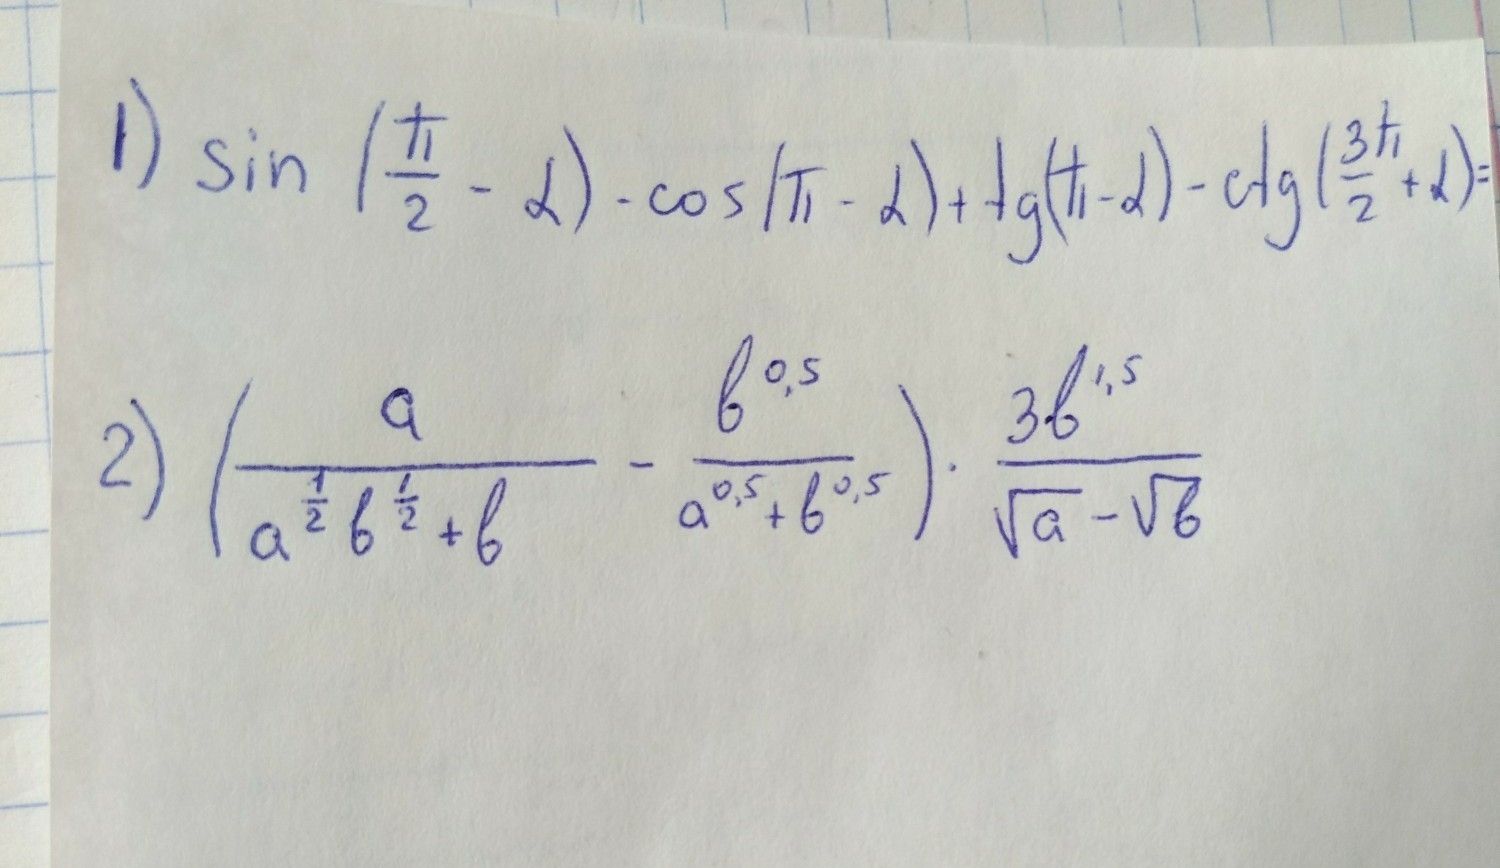 1) sin (π/2 - α) - cos(π - α) + tg(π - α) - ctg(3π/2 + α) =
2) (a / (a^(1/2) b^(1/2) + b) - b^0,5 / (a^0,5 + b^0,5)) · 3b^1,5 / (√a - √b)